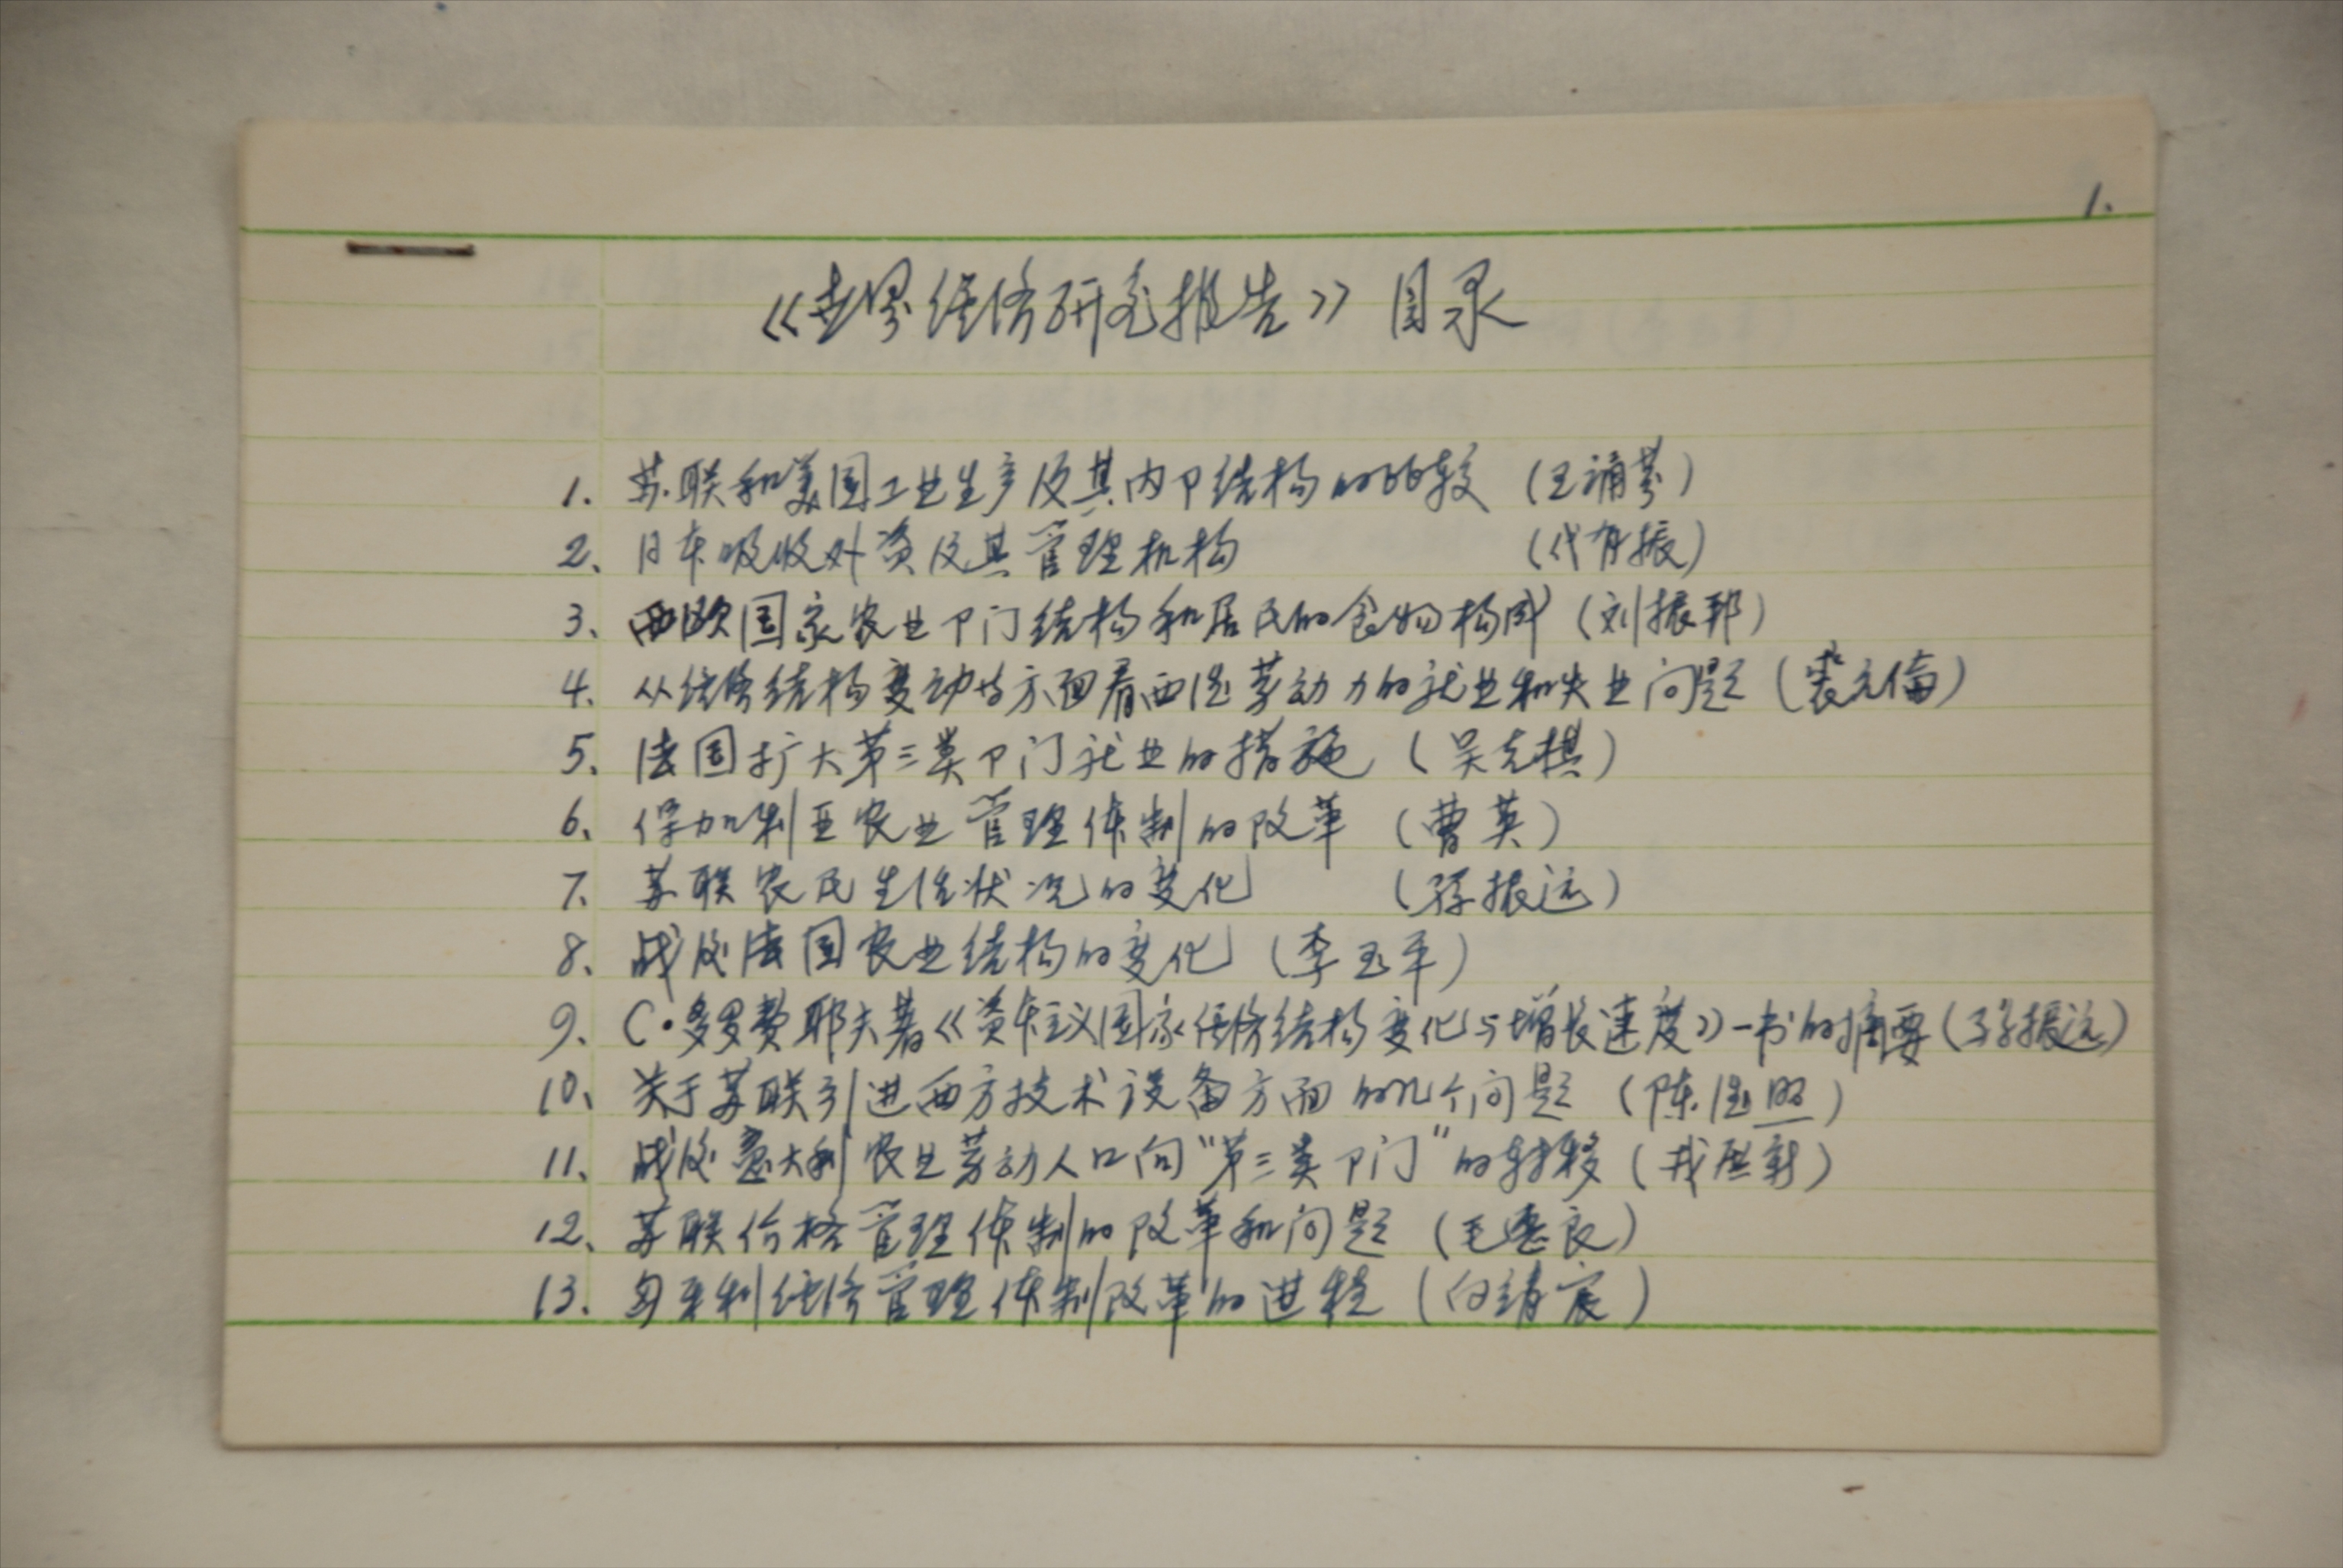 1.
《世界经济研究报告》目录
1. 苏联和美国工业生产及其内卩结构的比较 (王诵芬)
2、日本吸收外资及其管理机构 (代有振)
3、西欧国家农业卩门结构和居民的食物构成 (刘振邦)
4. 从经济结构变动方面看西德劳动力的就业和失业问题 (裘元倫)
5、法国扩大第三类卩门就业的措施 (吴克祺)
6、保加利亚农业管理体制的改革 (曹英)
7、苏联农民生活状况的变化 (孙振远)
8、战后法国农业结构的变化 (李玉平)
9、C·多罗费耶夫著《资本主义国家经济结构变化与增长速度》一书的摘要 (孙振远)
10、关于苏联引进西方技术设备方面的几个问题 (陈德照)
11、战后意大利农业劳动人口向“第三类卩门”的转移 (戎殿新)
12、苏联价格管理体制的改革和问题 (毛惠良)
13. 匈牙利经济管理体制改革的进程 (向靖宸)